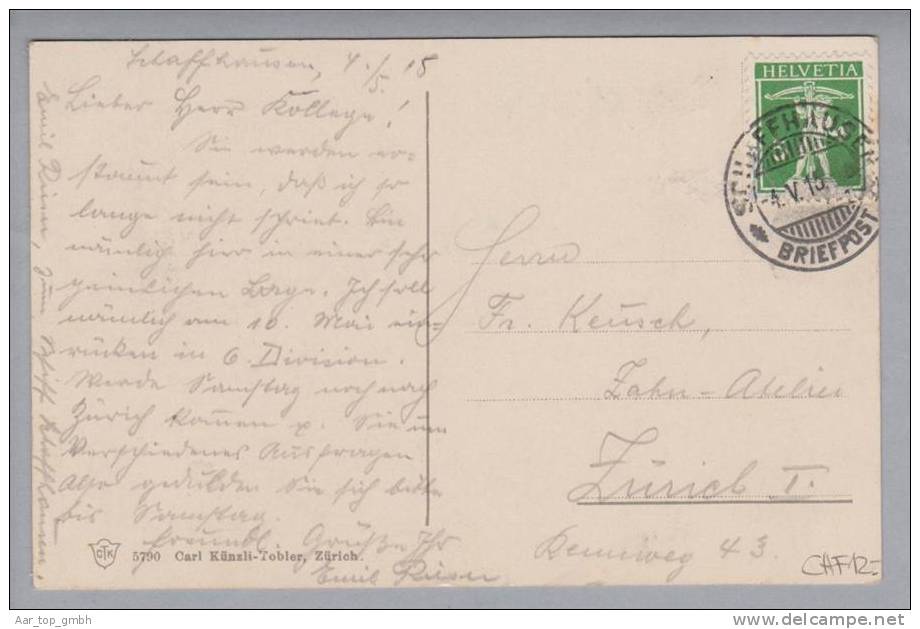 Schaffhausen, 4./5. 15
Lieber Herr Kollege!
Sie werden er-
staunt sein, daß ich so
lange nicht schrieb. Bin
nämlich hier in einer sehr
peinlichen Lage. Ich soll
nämlich am 10. Mai ein-
rücken in 6. Division.
Werde Samstag noch nach
Zürich kommen u. Sie um
Verschiedenes Ausfragen
Also gedulden Sie sich bitte
bis Samstag.
freundl. Grüße Ihr
Emil
Emil zum Schiff Schaffhausen.
HELVETIA
SCHAFFHAUSEN
4.V.15
BRIEFPOST
Herrn
Fr. Keusch,
Zahn-Atelier
Zürich I.
Rennweg 43.
CTK
5790 Carl Künzli-Tobler, Zürich.
CHF 12.-
Aar_top_gmbh
www.delcampe.net